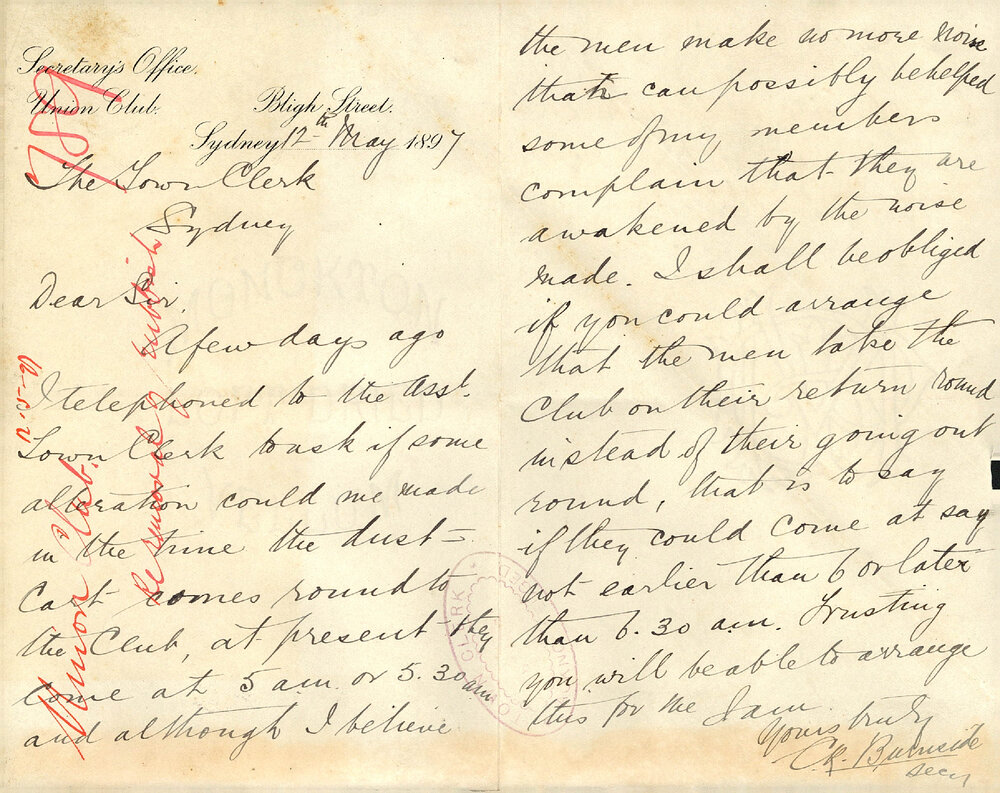 Secretary's Office.
Union Club. Bligh Street.
Sydney 12th May 1897
The Town Clerk
Sydney
Dear Sir,
A few days ago
I telephoned to the Asst.
Town Clerk to ask if some
alteration could me made
in the time the dust-
Cart comes round to
the Club, at present they
come at 5 a.m. or 5.30 am
and although I believe
the men make no more noise
than can possibly be helped
some of my members
complain that they are
awakened by the noise
made. I shall be obliged
if you could arrange
that the men take the
Club on their return round
instead of their going out
round, that is to say
if they could come at say
not earlier than 6 or later
than 6.30 a.m. Trusting
you will be able to arrange
this for me I am
Yours truly
C.R. Burnside
Secy
Union Club.
Removal of rubbish